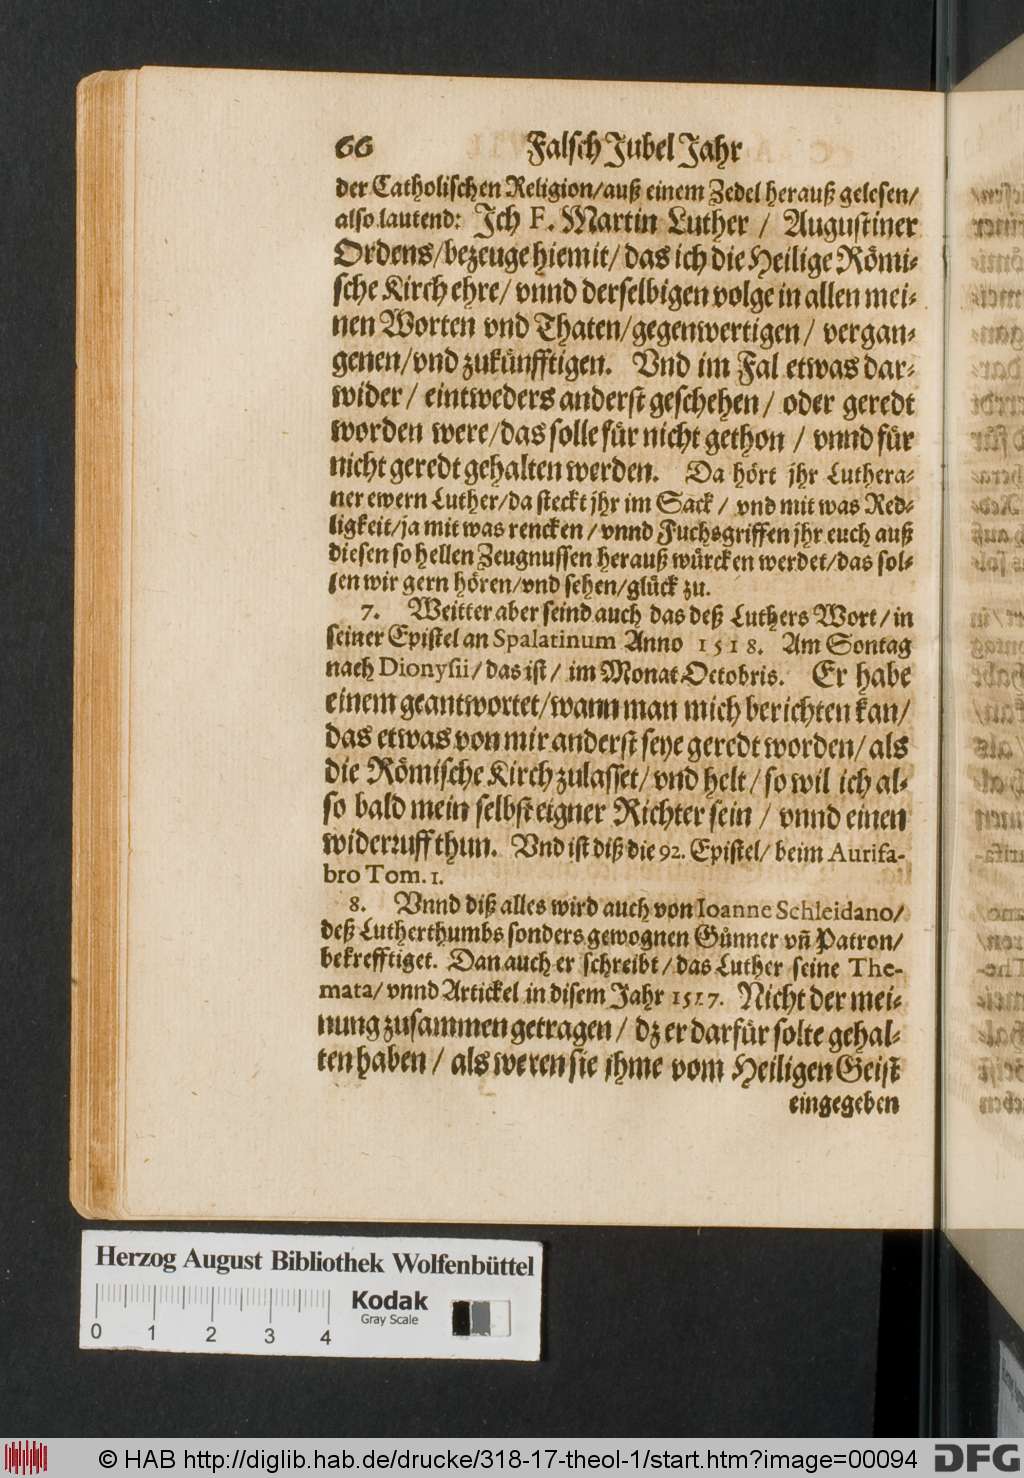 66 Falsch Jubel Jahr
der Catholischen Religion/auß einem Zedel herauß gelesen/
also lautend: Jch F. Martin Luther / Augustiner
Ordens/bezeuge hiemit/ das ich die Heilige Römi-
sche Kirch ehre/ vnnd derselbigen volge in allen mei-
nen Worten vnd Thaten/gegenwertigen/ vergan-
genen/vnd zukünfftigen. Vnd im Fal etwas dar-
wider/ eintweders anderst geschehen/ oder geredt
worden were/das solle für nicht gethon / vnnd für
nicht geredt gehalten werden. Da hört jhr Luthera-
ner ewern Luther/da steckt jhr im Sack / vnd mit was Red-
ligkeit/ja mit was rencken / vnnd Fuchsgriffen jhr euch auß
diesen so hellen Zeugnussen herauß würcken werdet/das sol-
len wir gern hören/vnd sehen/glück zu.
7. Weitter aber seind auch das deß Luthers Wort/in
seiner Epistel an Spalatinum Anno 1518. Am Sontag
nach Dionysii/das ist/ im Monat Octobris. Er habe
einem geantwortet/wann man mich berichten kan/
das etwas von mir anderst seye geredt worden/als
die Römische Kirch zulasset/vnd helt/so wil ich al-
so bald mein selbst eigner Richter sein / vnnd einen
widerruff thun. Vnd ist diß die 92. Epistel/ beim Aurifa-
bro Tom. 1.
8. Vnnd diß alles wird auch von Ioanne Schleidano/
deß Lutherthumbs sonders gewognen Günner vñ Patron/
bekrefftiget. Dan auch er schreibt/das Luther seine The-
mata/vnnd Artickel in disem Jahr 1517. Nicht der mei-
nung zusammen getragen/ dz er darfür solte gehal-
ten haben / als weren sie jhme vom Heiligen Geist
eingegeben
Herzog August Bibliothek Wolfenbüttel
Kodak
Gray Scale
0 1 2 3 4
© HAB http://diglib.hab.de/drucke/318-17-theol-1/start.htm?image=00094 DFG